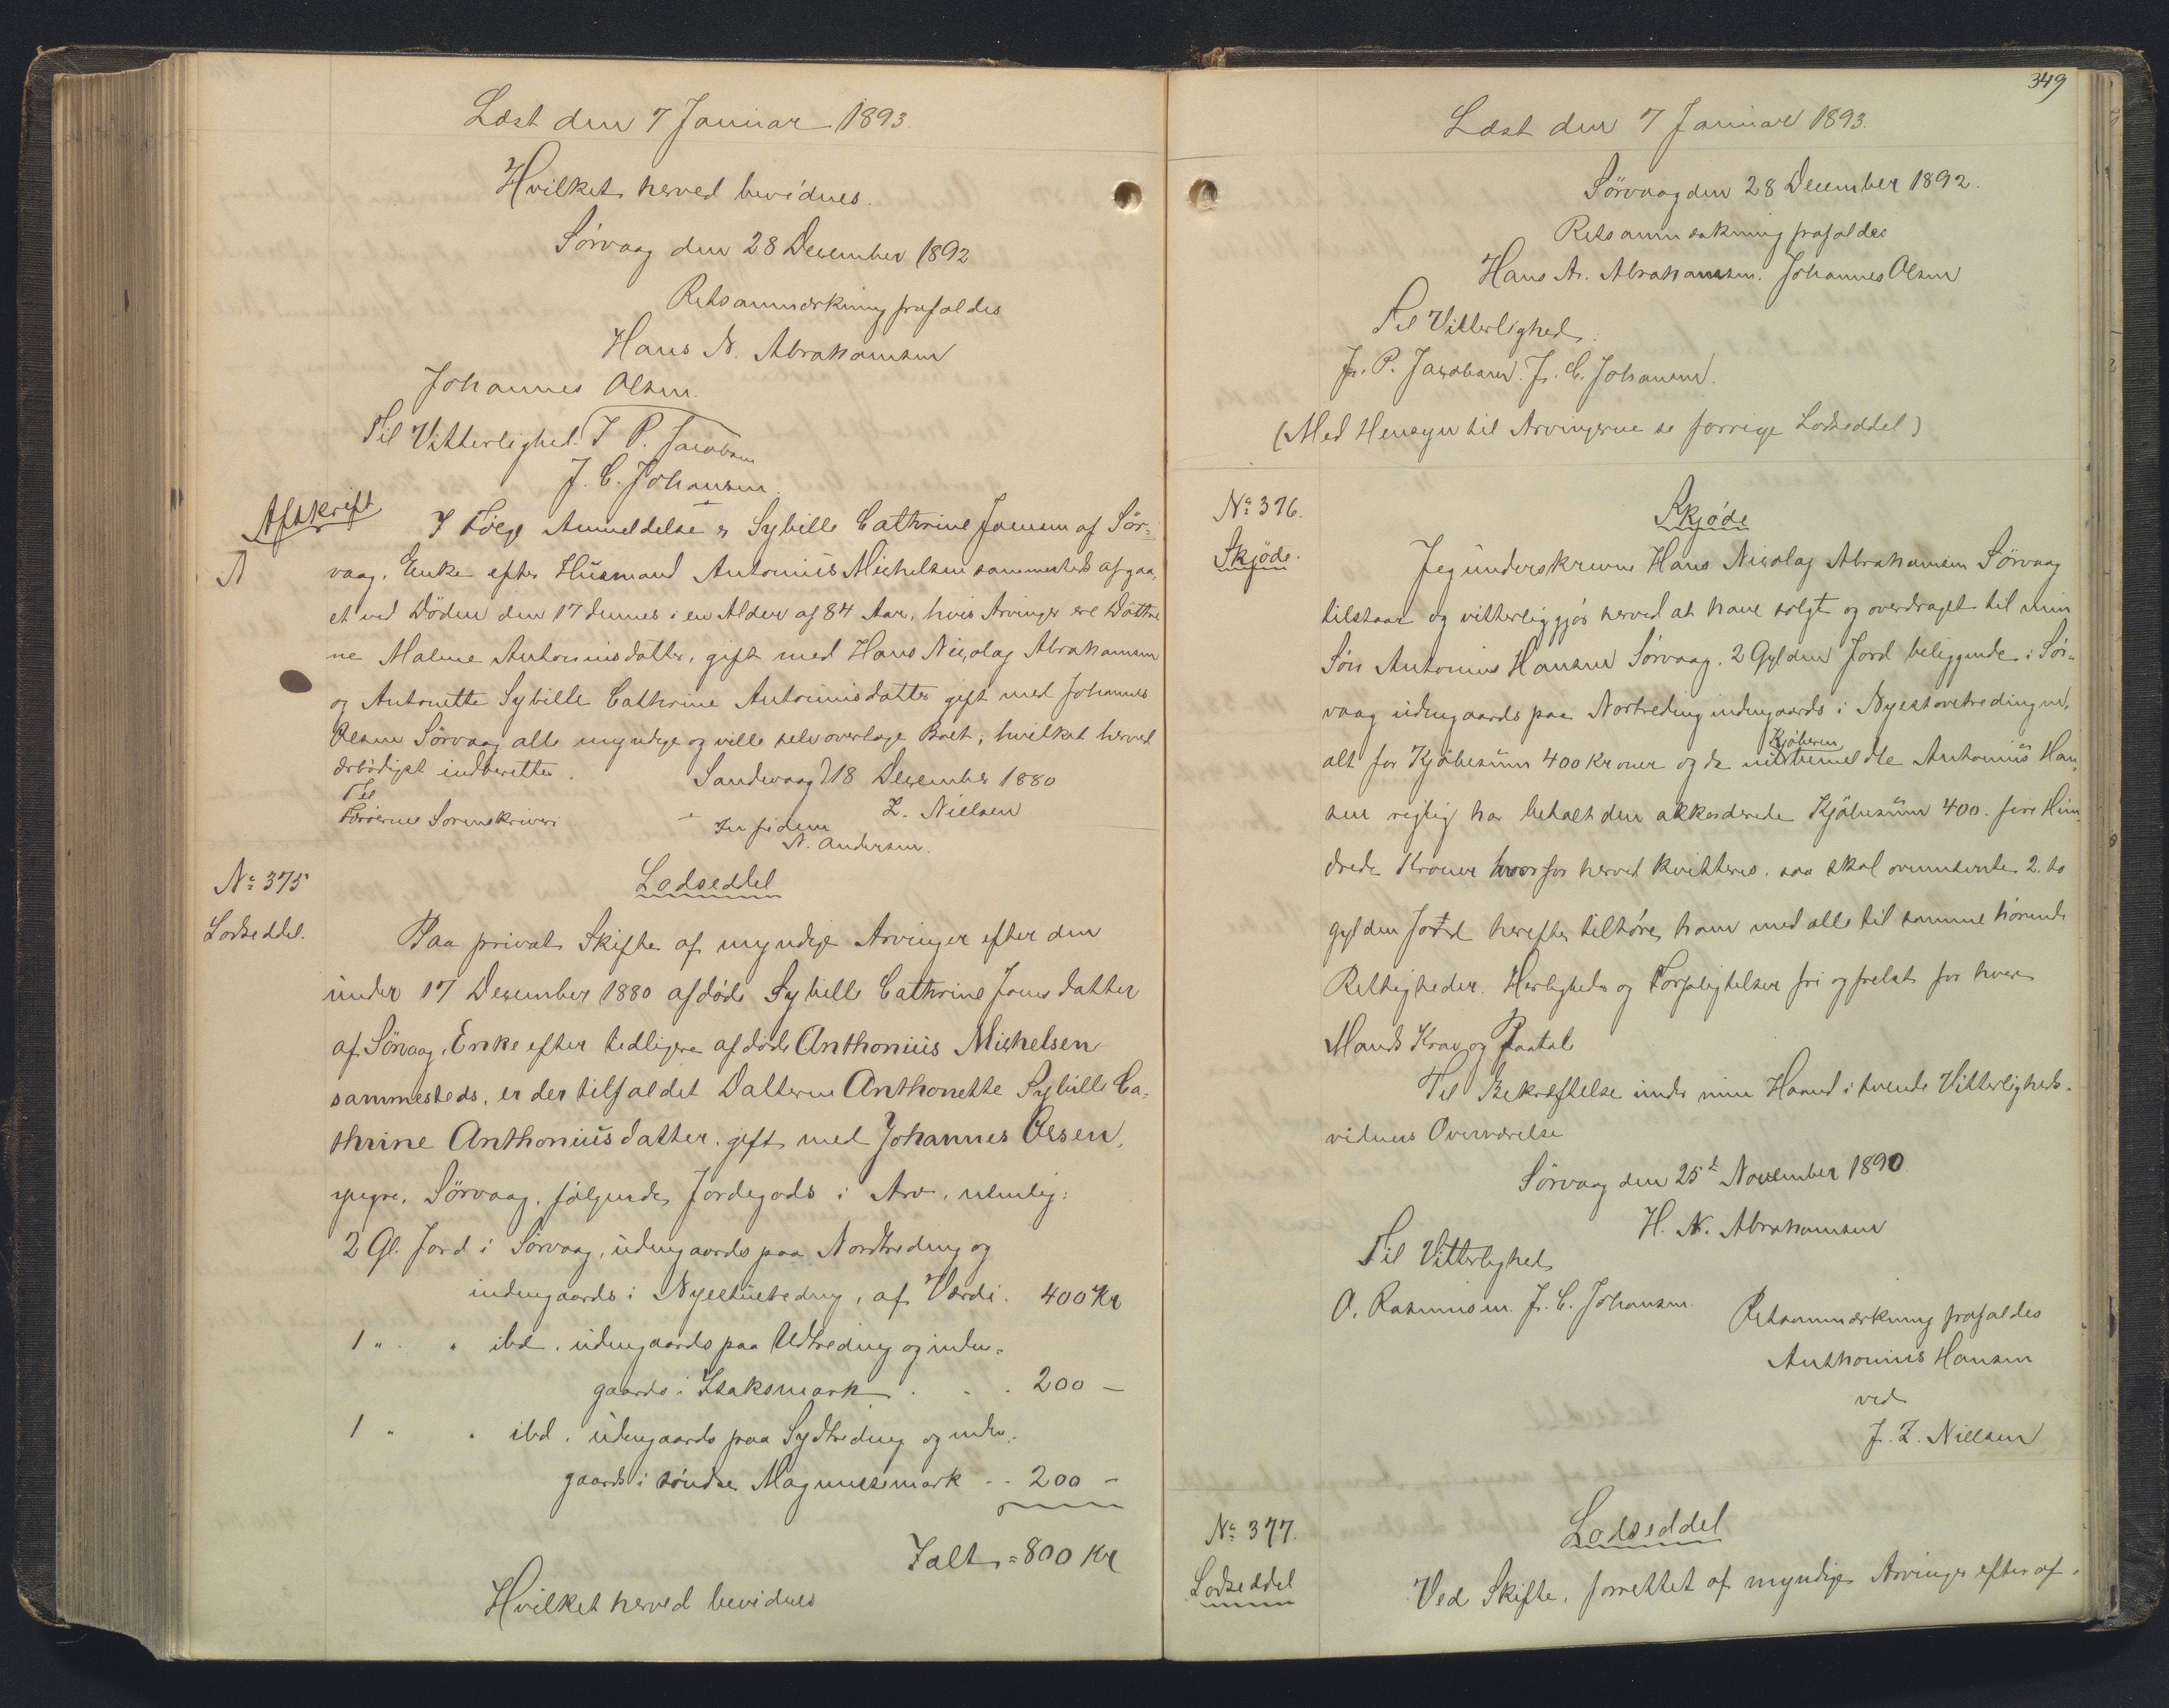 Læst den 7 Januar 1893.
Hvilket herved bevidnes.
Sörvaag den 28 December 1892
Retsanmærkning frafaldes
Hans N. Abrahamsen
Johannes Olsen.
Til Vitterlighed. J. P. Jacobsen
J. C. Johansen.
Afskrift
I Fölge Anmeldelse er Sybille Cathrine Joensen af Sör-
vaag, Enke efter Husmand Antonius Michelsen sammesteds afgaa-
et ved Döden den 17 dennes i en Alder af 84 Aar, hvis Arvinger ere Döttre
ne Malene Antoniusdatter, gift med Hans Nicolay Abrahamsen
og Antonette Sybille Cathrine Antoniusdatter gift med Johannes
Olsen Sörvaag alle myndige og ville selv overtage Boet, hvilket herved
ærbödigst indberettes.
Sandevaag d 18 December 1880
Til
Færöernes Sorenskriveri
Z. Nielsen
In fidem
N. Andersen.
No 375
Lodseddel.
Lodseddel
Paa privat Skifte af myndige Arvinger efter den
under 17 Desember 1880 afdöde Sybille Cathrine Joensdatter
af Sörvaag, Enke efter tidligere afdöde Anthonius Michelsen
sammesteds, er der tilfaldet Datteren Anthonette Sybille Ca-
thrine Anthoniusdatter, gift med Johannes Olsen,
yngre, Sörvaag, fölgende Jordegods i Arv, nemlig:
2 Gl. Jord i Sörvaag, udengaards paa Nordtreding og
indengaards i Nyestuetreding, af Værdi. 400 Kr
1 " " ibd. udengaards paa Udtreding og inden-
gaards i Isaksmark . . . 200 -
1 " " ibd. udengaards paa Sydtreding og inden-
gaards i söndre Magnussemark - - 200 -
Ialt = 800 Kr
Hvilket herved bevidnes
349
Læst den 7 Januar 1893.
Sörvaag den 28 December 1892.
Retsanmærkning frafaldes
Hans N. Abrahamsen. Johannes Olsen
Til Vitterlighed.
J. P. Jacobsen. J. C. Johansen.
(Med Hensyn til Arvingerne se forrige Lodseddel)
No 376.
Skjöde.
Skjöde
Jeg underskrevne Hans Nicolay Abrahamsen Sörvaag
tilstaar og vitterliggjör herved at have solgt og overdraget til min
Sön Antonius Hansen Sörvaag. 2 Gylden Jord beliggende i Sör-
vaag udengaards paa Nortreding indengaards i Nyestovetreding
alt for Kjöbesum 400 Kroner og da Kjöberen Antonius Han-
sen rigtig har betalt den akkorderede Kjöbesum 400. fire Hun-
drede Kroner hvorfor herved kvitteres. saa skal ovennævnte 2. to
gylden Jord herefter tilhöre ham med alle til samme hörende
Rettigheder. Herligheder og Forpligtelser fri og frelst for hver
Mands Krav og Paatale
Til Bekræftelse under min Haand i tvende Vitterligheds-
vidners Overværelse
Sörvaag den 25d November 1890.
H. N. Abrahamsen
Til Vitterlighed
O. Rasmussen. J. C. Johansen.
Retsanmærkning frafaldes
Anthonius Hansen
ved
J. Z. Nielsen
No 377.
Lodseddel
Lodseddel
Ved Skifte, forrettet af myndige Arvinger efter af-